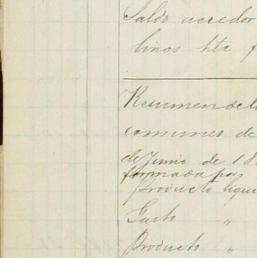 Saldo acredor
linos hta
Resumen de l
comunes de
de Junio de 18
formada por
producto liqui
Gasto "
Producto "